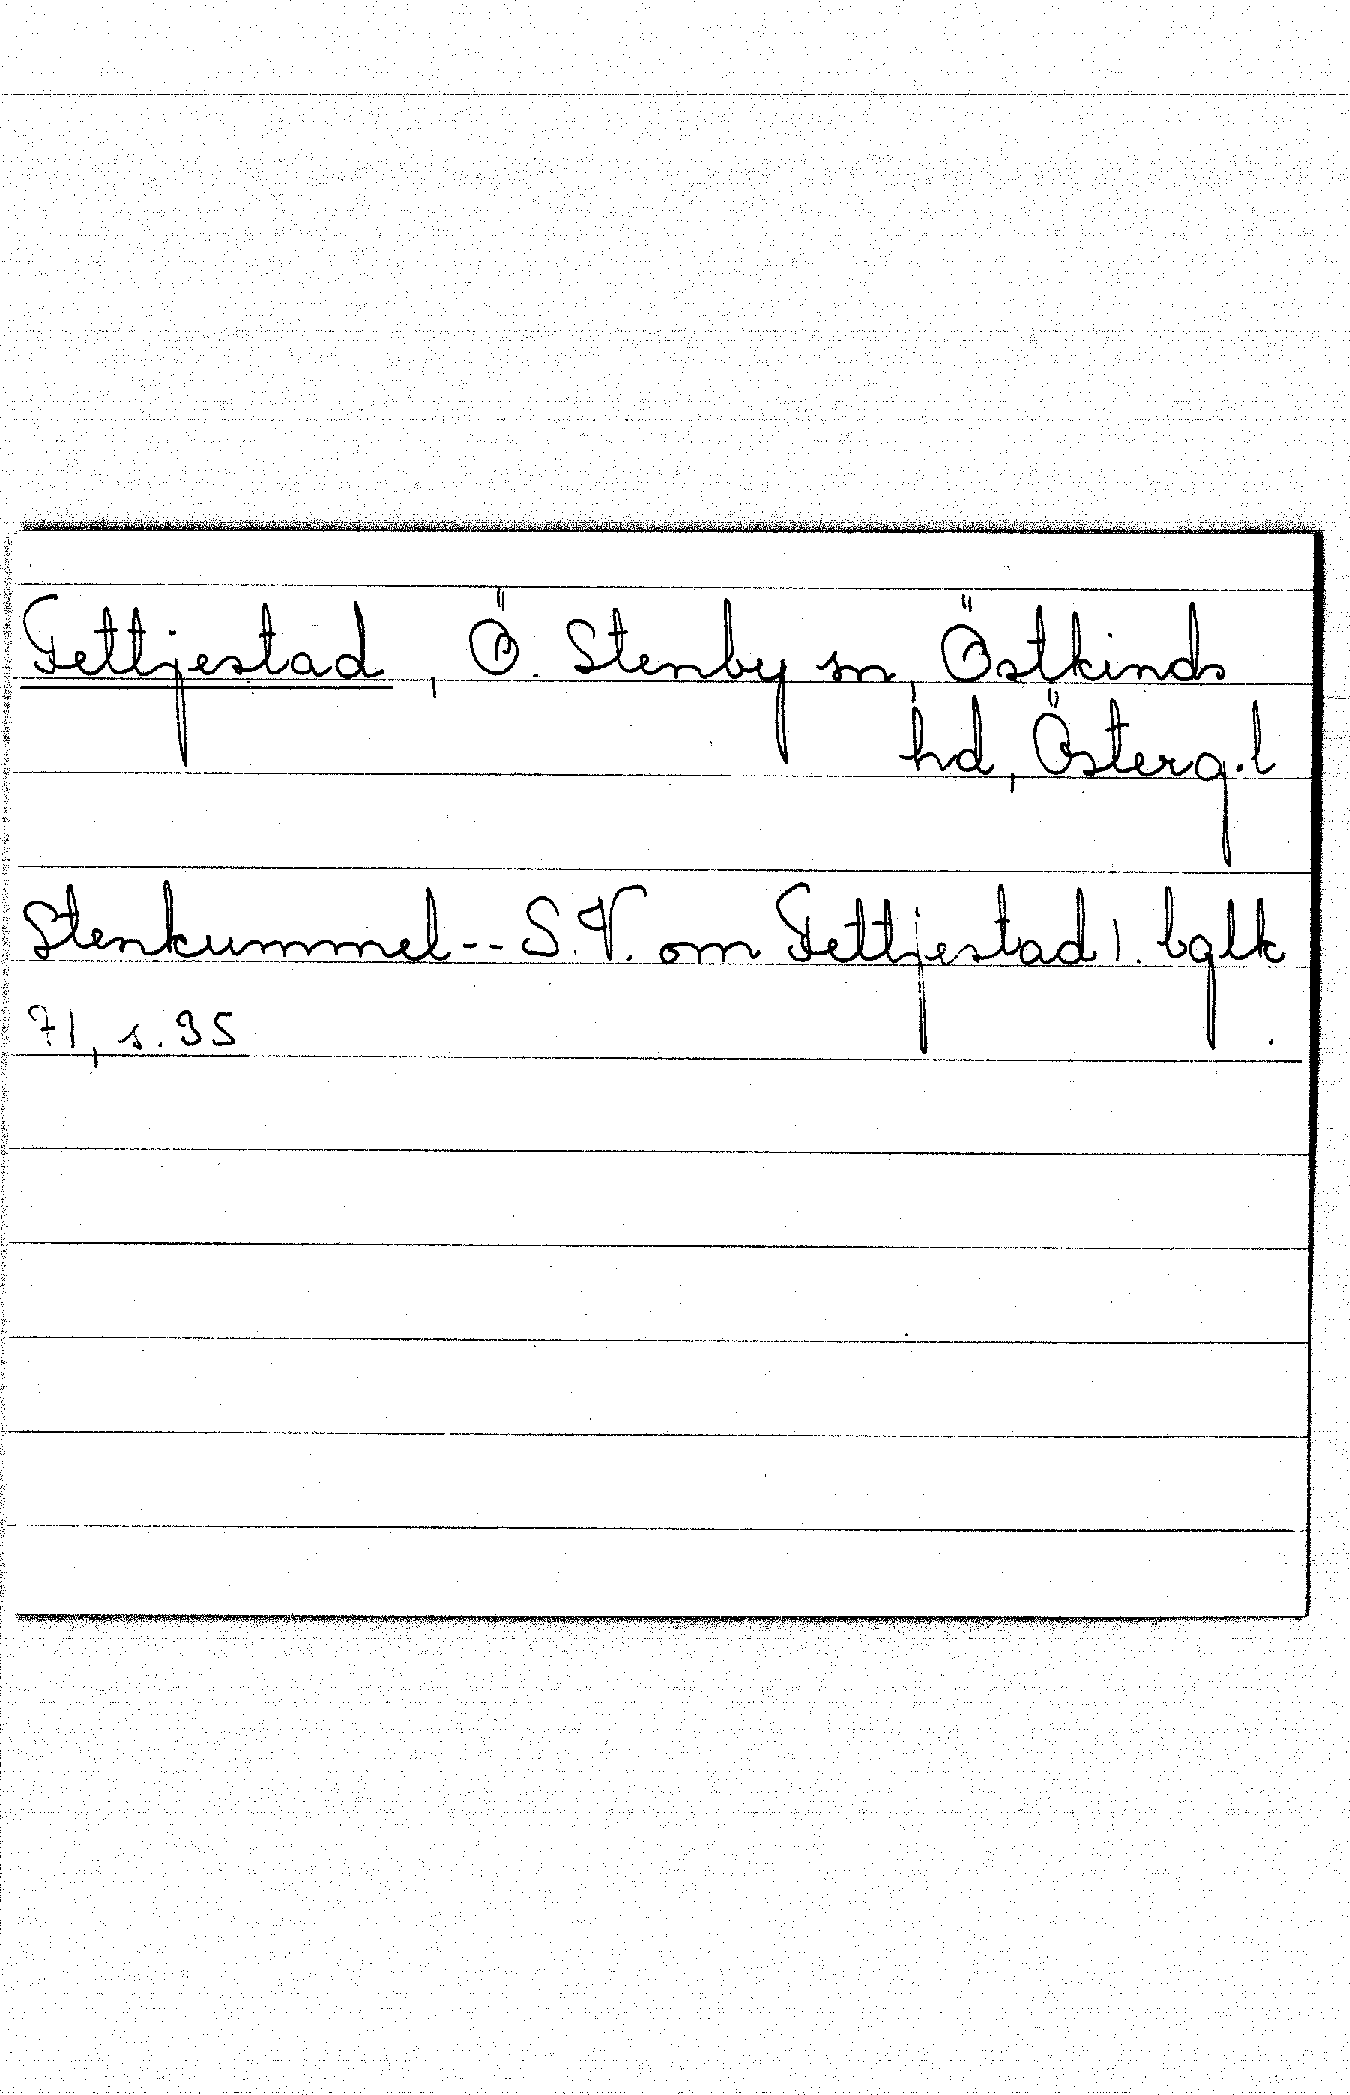 Fettjestad, Ö. Stenby sn, Östkinds
hd, Österg.l
Stenkummel -- S.V. om Fettjestad). bglk
71, s. 35